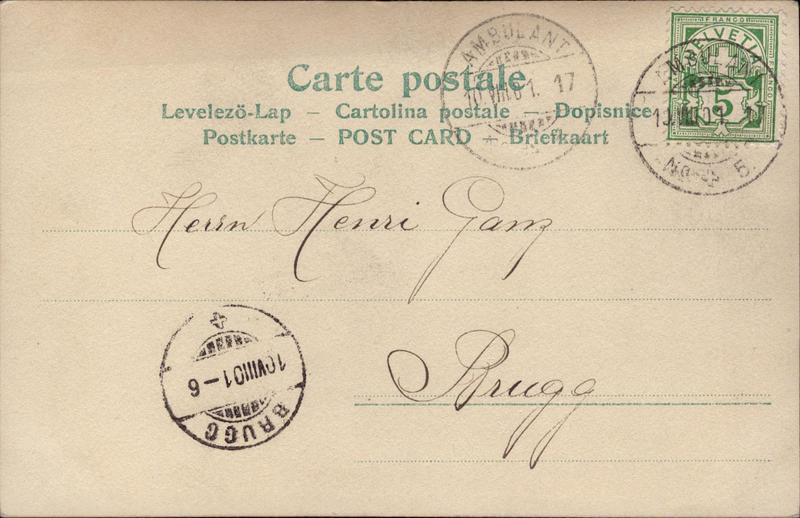 FRANCO
HELVETIA
5
AMBULANT
10 VIII 01. 17
No 5.
Carte postale
Levelező-Lap – Cartolina postale – Dopisnice
Postkarte – POST CARD – Briefkaart
Herrn Henri Ganz
Brugg
10 VIII 01 – 6
BRUGG